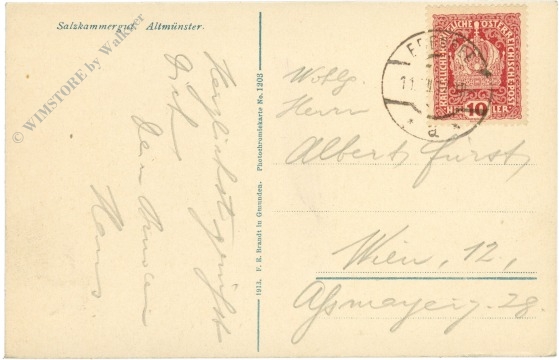 Salzkammergut. Altmünster.
© WIMSTORE by Walkner
Herzlichst grüßt
Dich
Dein
Hans.
1913. F. E. Brandt in Gmunden. Photochromiekarte No. 1203
KAISERLICHE KÖNIGLICHE ÖSTERREICHISCHE POST
HELLER
10
a
Wohlg.
Herrn
Albert Fürst
Wien, 12.,
Aßmayerg. 28.